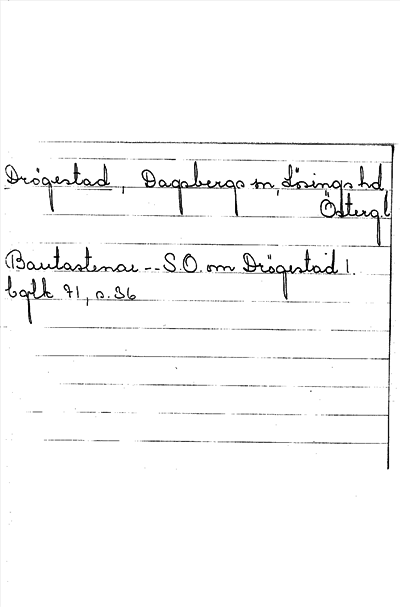 Drögestad, Dagsbergs sn, Lösings hd,
Östergl
Bautastenar -- S.O. om Drögestad 1.
bglk 71, s. 36